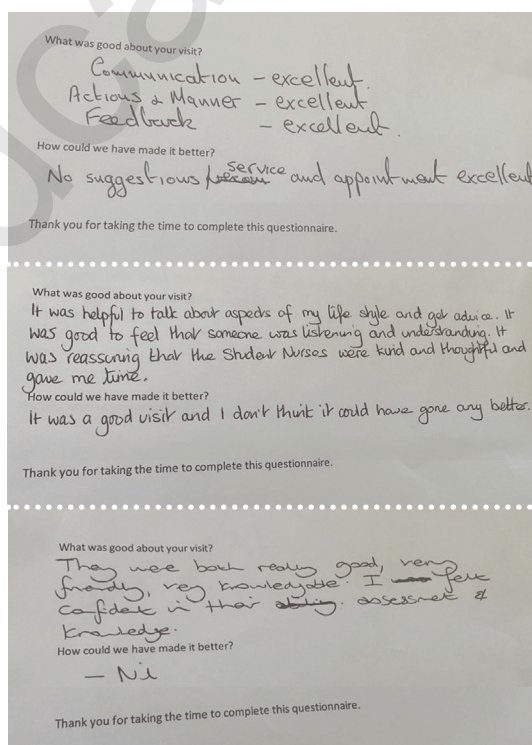 What was good about your visit?
Communication – excellent.
Actions & Manner – excellent
Feedback – excellent.
How could we have made it better?
No suggestions service and appointment excellent
Thank you for taking the time to complete this questionnaire.
What was good about your visit?
It was helpful to talk about aspects of my life style and get advice. It
was good to feel that someone was listening and understanding. It
was reassuring that the Student Nurses were kind and thoughtful and
gave me time.
How could we have made it better?
It was a good visit and I don't think it could have gone any better.
Thank you for taking the time to complete this questionnaire.
What was good about your visit?
They were both really good, very
friendly, very knowledgable. I felt
confident in their assessment &
knowledge.
How could we have made it better?
– Nil
Thank you for taking the time to complete this questionnaire.